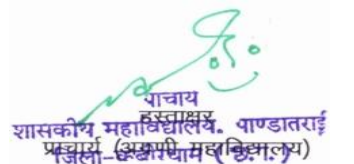 पाचाय
हस्ताक्षर
शासकीय महाविद्यालय. पाण्डातराई
प्राचार्य (अग्रणी महाविद्यालय)
जिला-कबीरधाम (छ.ग.)